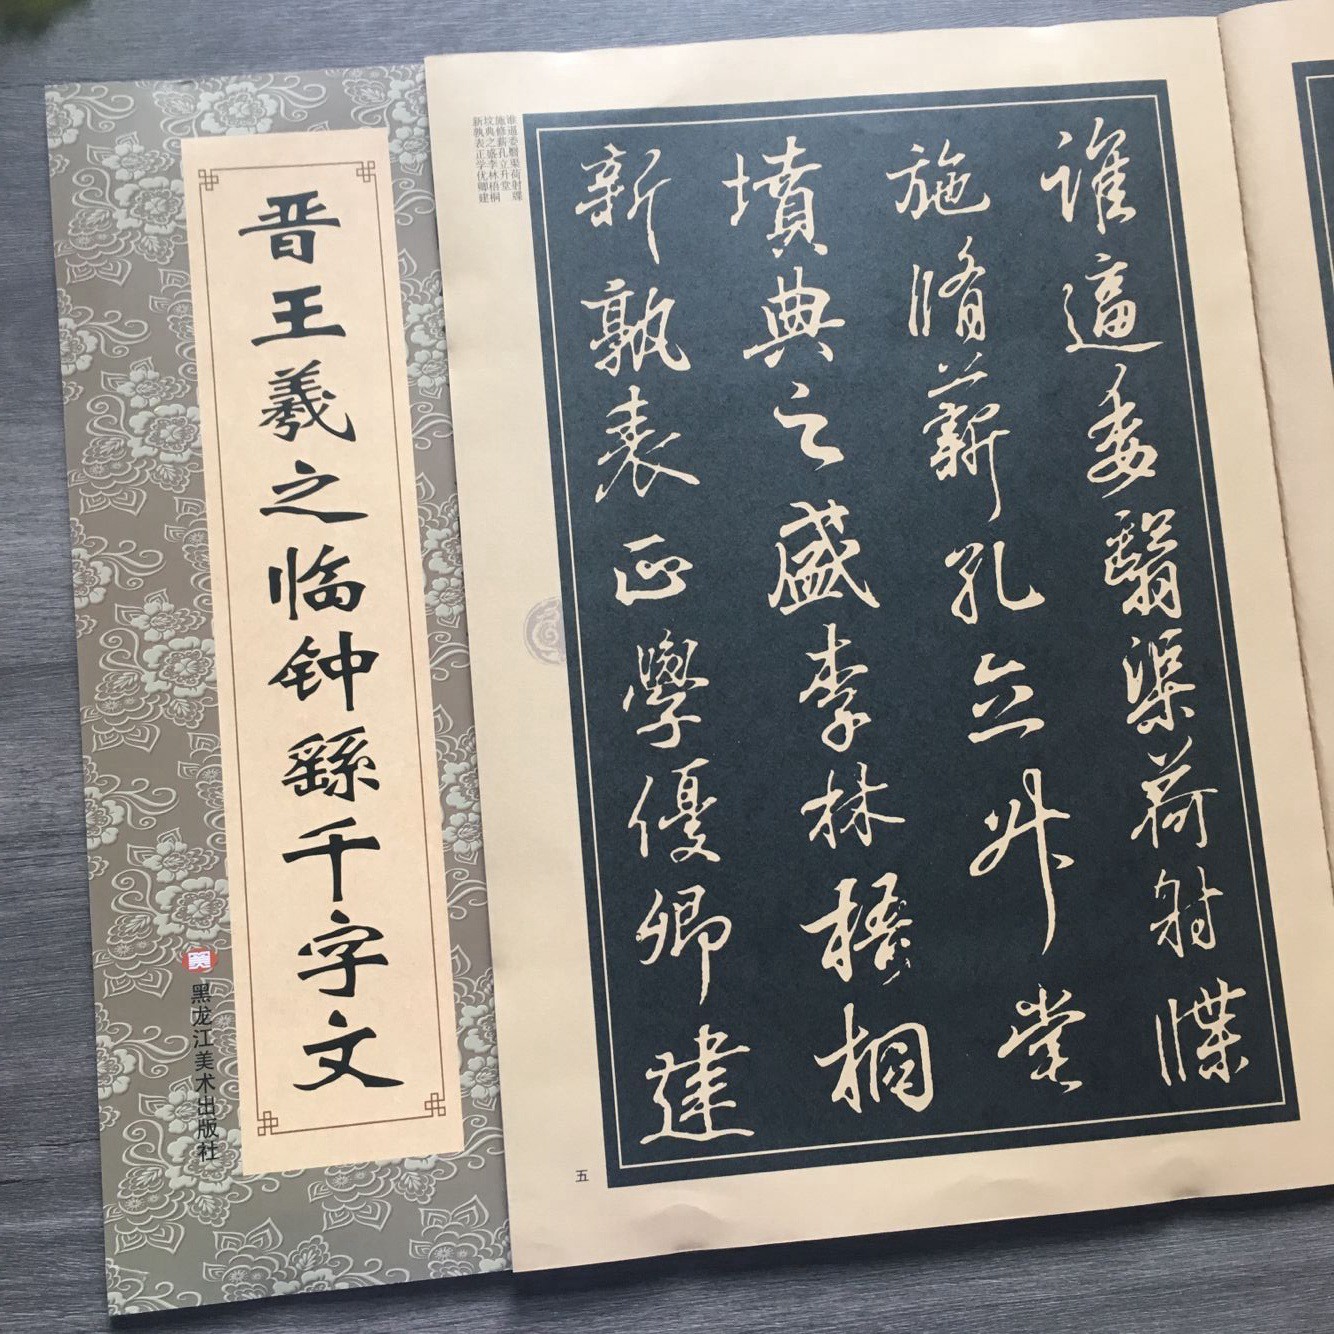 晋王羲之临钟繇千字文
黑龙江美术出版社
谁逼委翳渠荷射牒
施修薪孔立升堂
坟典之盛李林梧桐
新孰表正学优卿建
誰逼委翳渠荷射牒
施脩薪孔立升堂
墳典之盛李林梧桐
新孰表正學優卿建
五